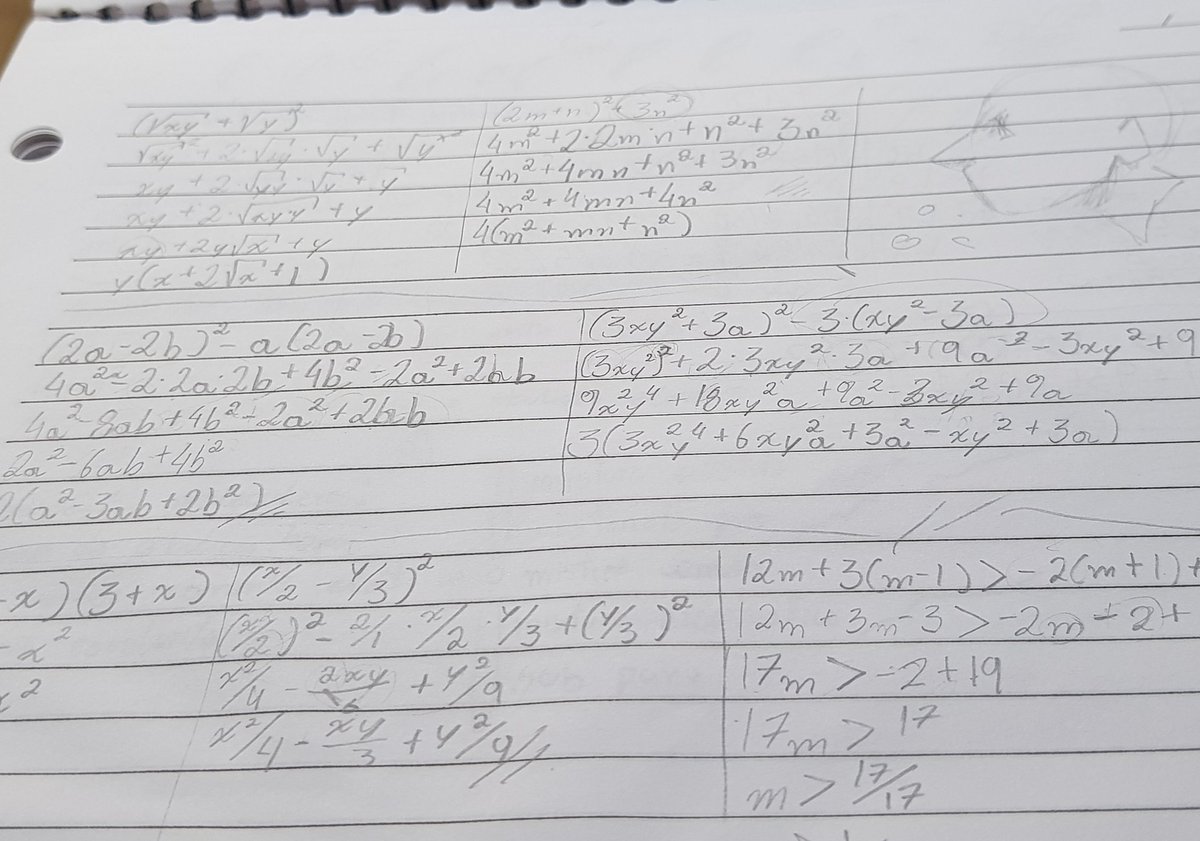 (√xy + √y)²
√xy² + 2·√xy·√y + √y²
xy + 2·√xy·√y + y
xy + 2·√xyy + y
xy + 2y√x + y
y(x + 2√x + 1)
(2m+n)² + (3n²)
4m² + 2·2m·n + n² + 3n²
4m² + 4mn + n² + 3n²
4m² + 4mn + 4n²
4(m² + mn + n²)
(2a-2b)² - a(2a-2b)
4a² - 2·2a·2b + 4b² - 2a² + 2ab
4a² - 8ab + 4b² - 2a² + 2ab
2a² - 6ab + 4b²
2(a² - 3ab + 2b²)
(3xy² + 3a)² - 3·(xy² - 3a)
(3xy²)² + 2·3xy²·3a + 9a² - 3xy² + 9
9x²y⁴ + 18xy²a + 9a² - 3xy² + 9a
3(3x²y⁴ + 6xy²a + 3a² - xy² + 3a)
-x)(3+x)
- x²
x²
(x/2 - y/3)²
(x/2)² - 2/1 · x/2 · y/3 + (y/3)²
x²/4 - 2xy/6 + y²/9
x²/4 - xy/3 + y²/9
12m + 3(m-1) > -2(m+1) +
12m + 3m - 3 > -2m - 2 +
17m > -2 + 19
17m > 17
m > 17/17